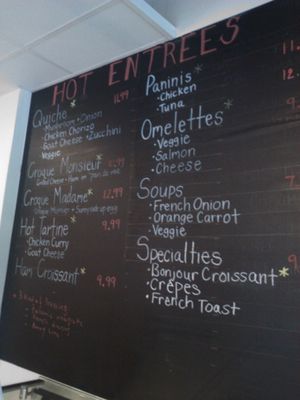 HOT ENTRÉES
Quiche* 11.99
• Mushroom • Onion
• Chicken Chorizo
• Goat Cheese • Zucchini
Veggie
Croque Monsieur*
Croque Madame* 12.99
Hot Tartine* 9.99
• Chicken Curry
• Goat Cheese
Ham Croissant* 9.99
Paninis*
• Chicken
• Tuna
Omelettes*
• Veggie
• Salmon
• Cheese
Soups
• French Onion
• Orange Carrot
• Veggie
Specialties
• Bonjour Croissant*
• Crêpes
• French Toast